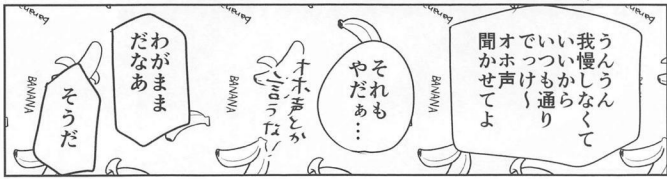 うんうん
我慢しなくて
いいから
いつも通り
でっけ～
オホ声
聞かせてよ
それも
やだぁ…
オホ声とか
言うな!
わがまま
だなあ
そうだ
BANANA
BANANA
BANANA
BANANA